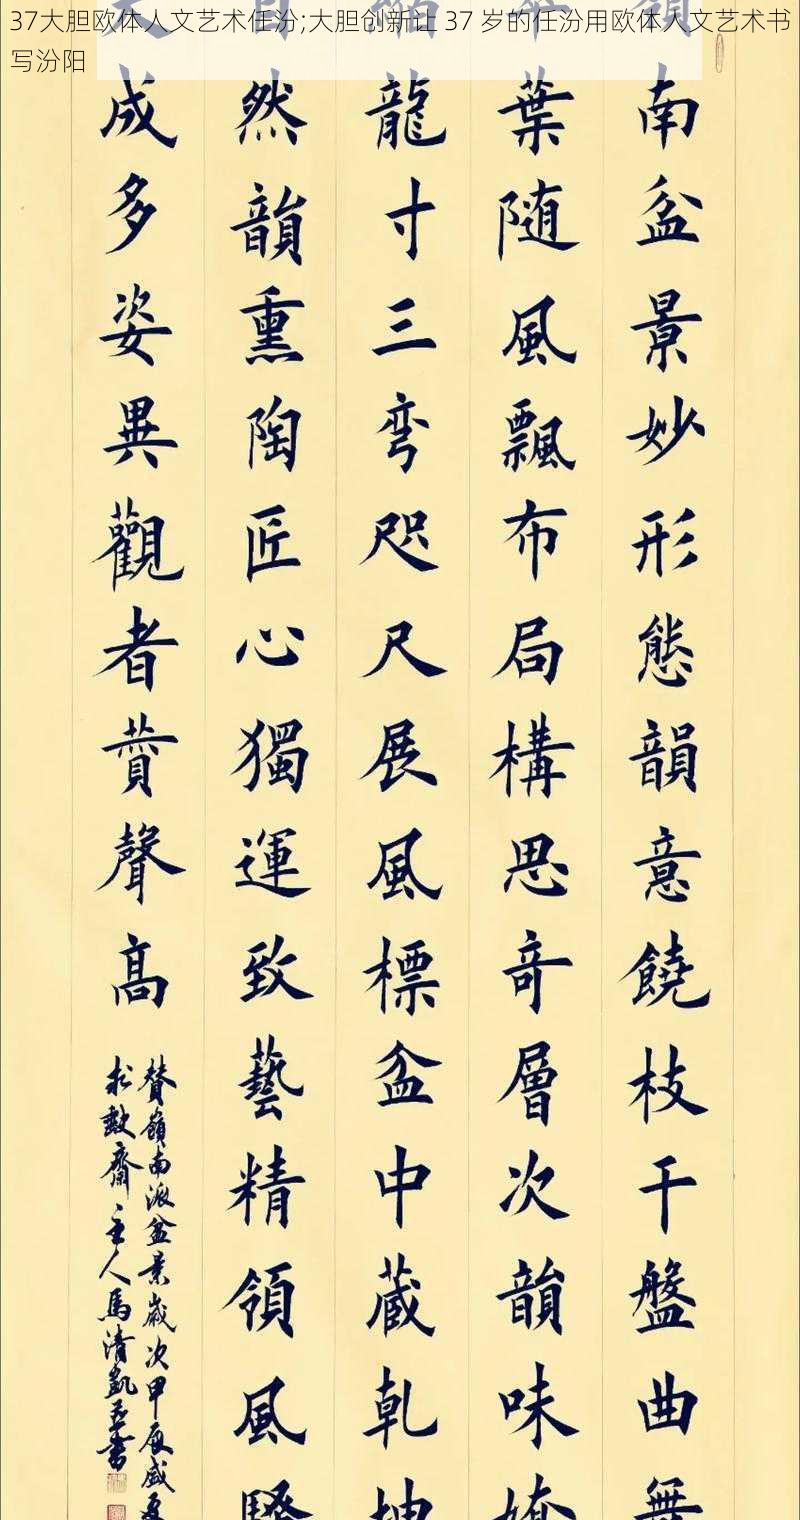 37大胆欧体人文艺术任汾;大胆创新让 37 岁的任汾用欧体人文艺术书
写汾阳
嶺南盆景妙形態韻意饒枝干盤曲無
葉随風飄布局構思奇層次韻味
龍寸三弯咫尺展風標盆中蔵乾坤
自然韻熏陶匠心獨運致藝精領風騷
成多姿異觀者賛聲高
賛嶺南派盆景歲次甲辰盛夏
松數齋主人馬清凱並書